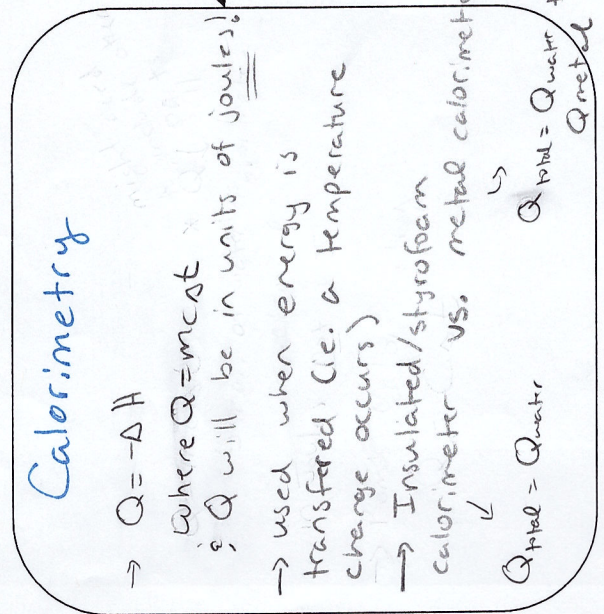 Calorimetry
→ Q = -ΔH
where Q = mcΔt
& Q will be in units of joules!
→ used when energy is
transfered (ie. a temperature
change occurs)
→ Insulated/styrofoam
calorimeter vs. metal calorimete
Qtotal = Qwater
Qtotal = Qwater +
Qmetal